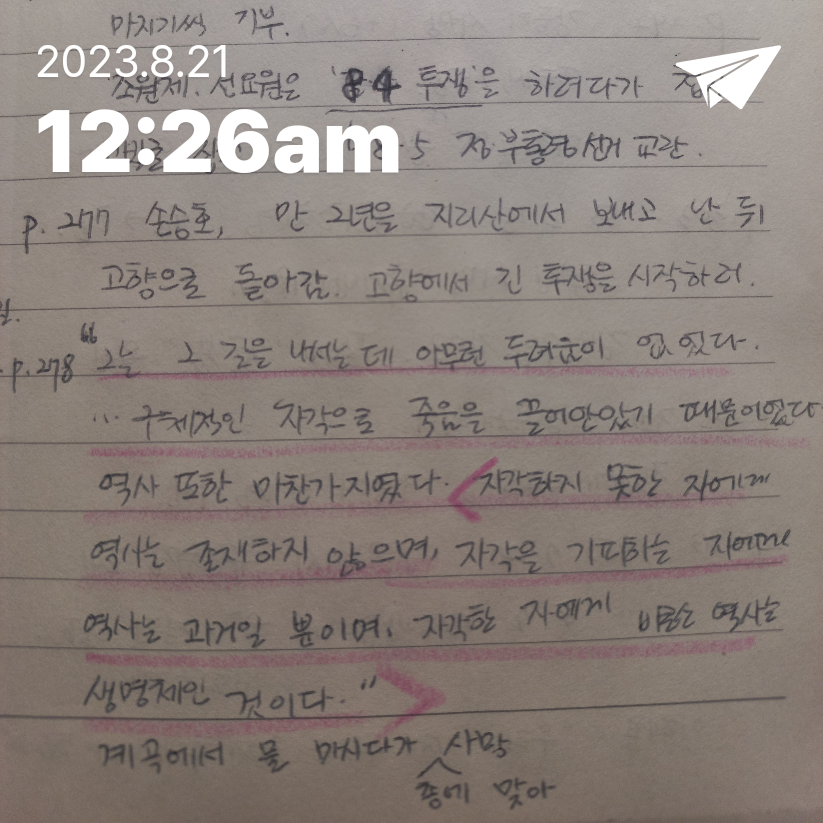 마지기씩 기부.
2023.8.21
조원제. 선요원은 '84 투쟁'을 하려다가
12:26am
8.5 정·부통령 선거 교란.
p. 277 손승호, 만 2년을 지리산에서 보내고 난 뒤
고향으로 돌아감. 고향에서 긴 투쟁을 시작하려.
p. 278 "그는 그 길을 나서는 데 아무런 두려움이 없었다.
… 구체적인 자각으로 죽음을 끌어안았기 때문이었다
역사 또한 마찬가지였다. <자각하지 못한 자에게
역사는 존재하지 않으며, 자각을 기피하는 자에게
역사는 과거일 뿐이며, 자각한 자에게 비로소 역사는
생명체인 것이다." >
계곡에서 물 마시다가 사망
총에 맞아